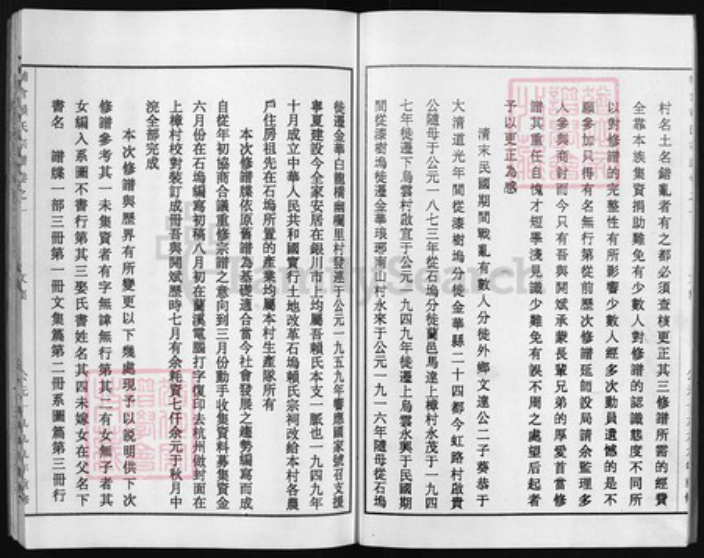 村名土名錯亂者有之都必須查核更正其三修譜所需的經費
全靠本族集資捐助難免有少數人對修譜的認識態度不同所
以對修譜的完整性有所影響少數人經多次動員遺憾的是不
願參加只得有名無行第從前歷次修譜延師設局請余監理多
人參與商討而今只有吾與開斌承蒙長輩兄弟的厚愛首當修
譜其重任自愧才短學淺見識少難免有誤不周之處望后起者
予以更正為感
清末民國期間戰亂有數人分徙外鄉文達公二子葵恭于
大清道光年間從漆樹塢分徙金華縣二十四都今虹路村啟貴
公隨母于公元一八七三年從石塢分徙蘭邑馬達上樟村永茂于一九四
七年徙遷下烏雲村啟宜于公元一九四九年徙遷上烏雲永興于民國期
間從漆樹塢徙遷金華琅琊南山村永來于公元一九一六年隨母從石塢
徙遷金華白龍橫幽欄里村發達于公元一九五九年響應國家號召支援
寧夏建設今全家安居在銀川市上均屬吾賴氏本支一脈也一九四九年
十月成立中華人民共和國實行土地改革石塢賴氏宗祠改給本村各農
戶住房祖先在石塢所置的產業均屬本村生產隊所有
本次修譜牒依原舊譜為基礎適合當今社會發展之趨勢編寫而成
自從年初協商合議重修宗譜之意向到三月份動手收集資料募集資金
六月份在石塢編寫初稿八月初在蘭溪電腦打字復印去杭州做封面在
上樟村校對裝訂成冊吾與開斌歷時七月有余耗資七仟余元于秋月中
浣全部完成
本次修譜與歷界有所變更以下幾處現予以說明供下次
修譜參考其一未集資者有字無諱無行第其二有女無子者其
女編入系圖不書行第其三娶氏書姓名其四未嫁女在父名下
書名　譜牒一部三冊第一冊文集篇第二冊系圖篇第三冊行
FamilySearch